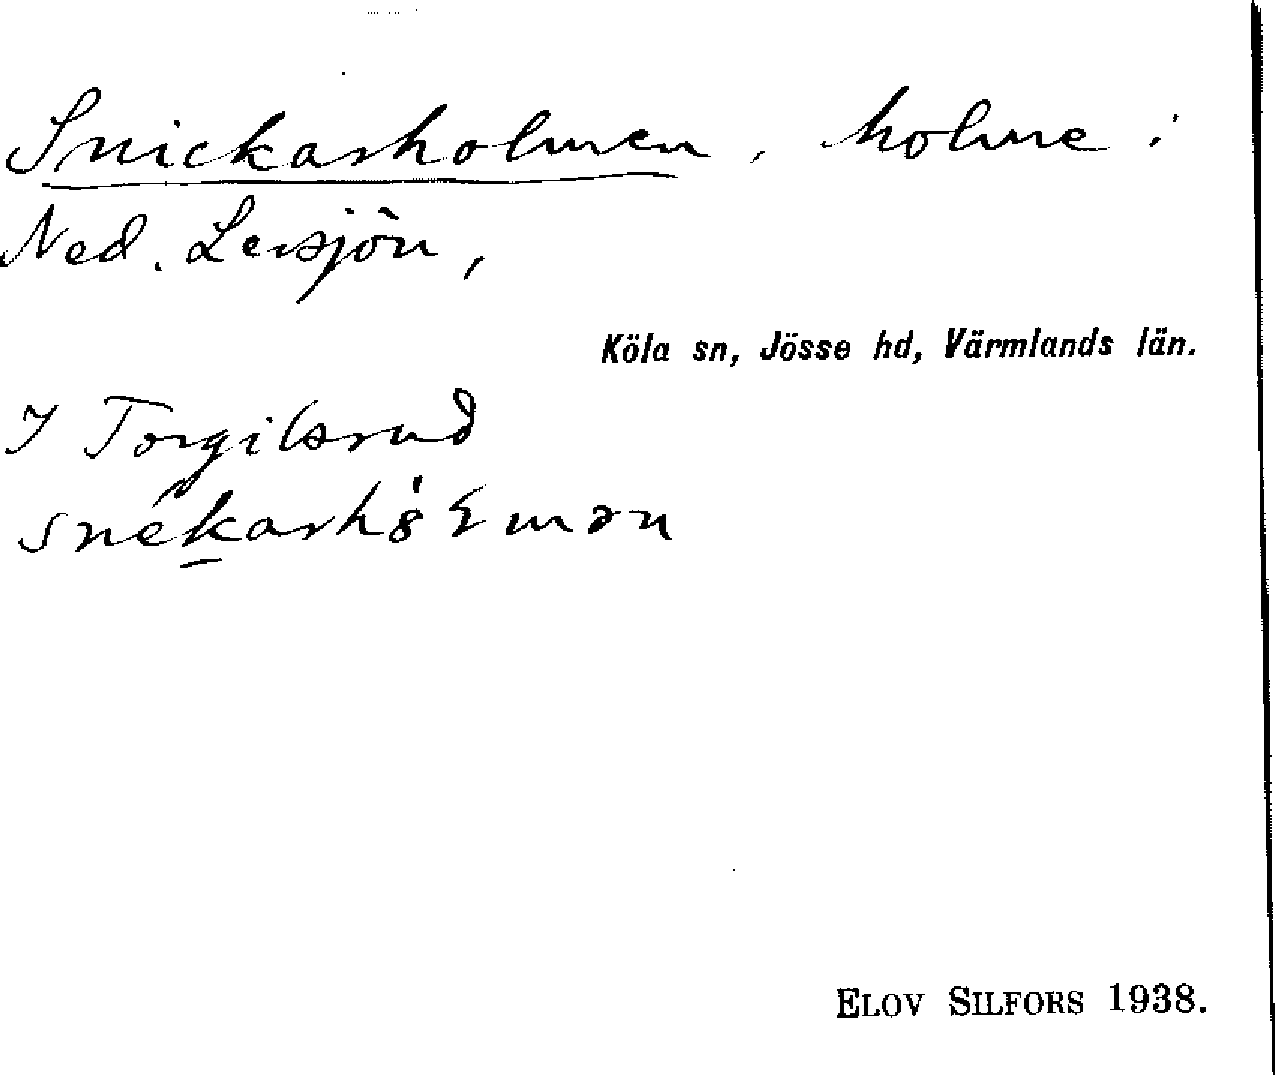 Snickarholmen, holme i
Ned. Lersjön,
Köla sn, Jösse hd, Värmlands län.
I Torgilsrud
ELOV SILFORS 1938.